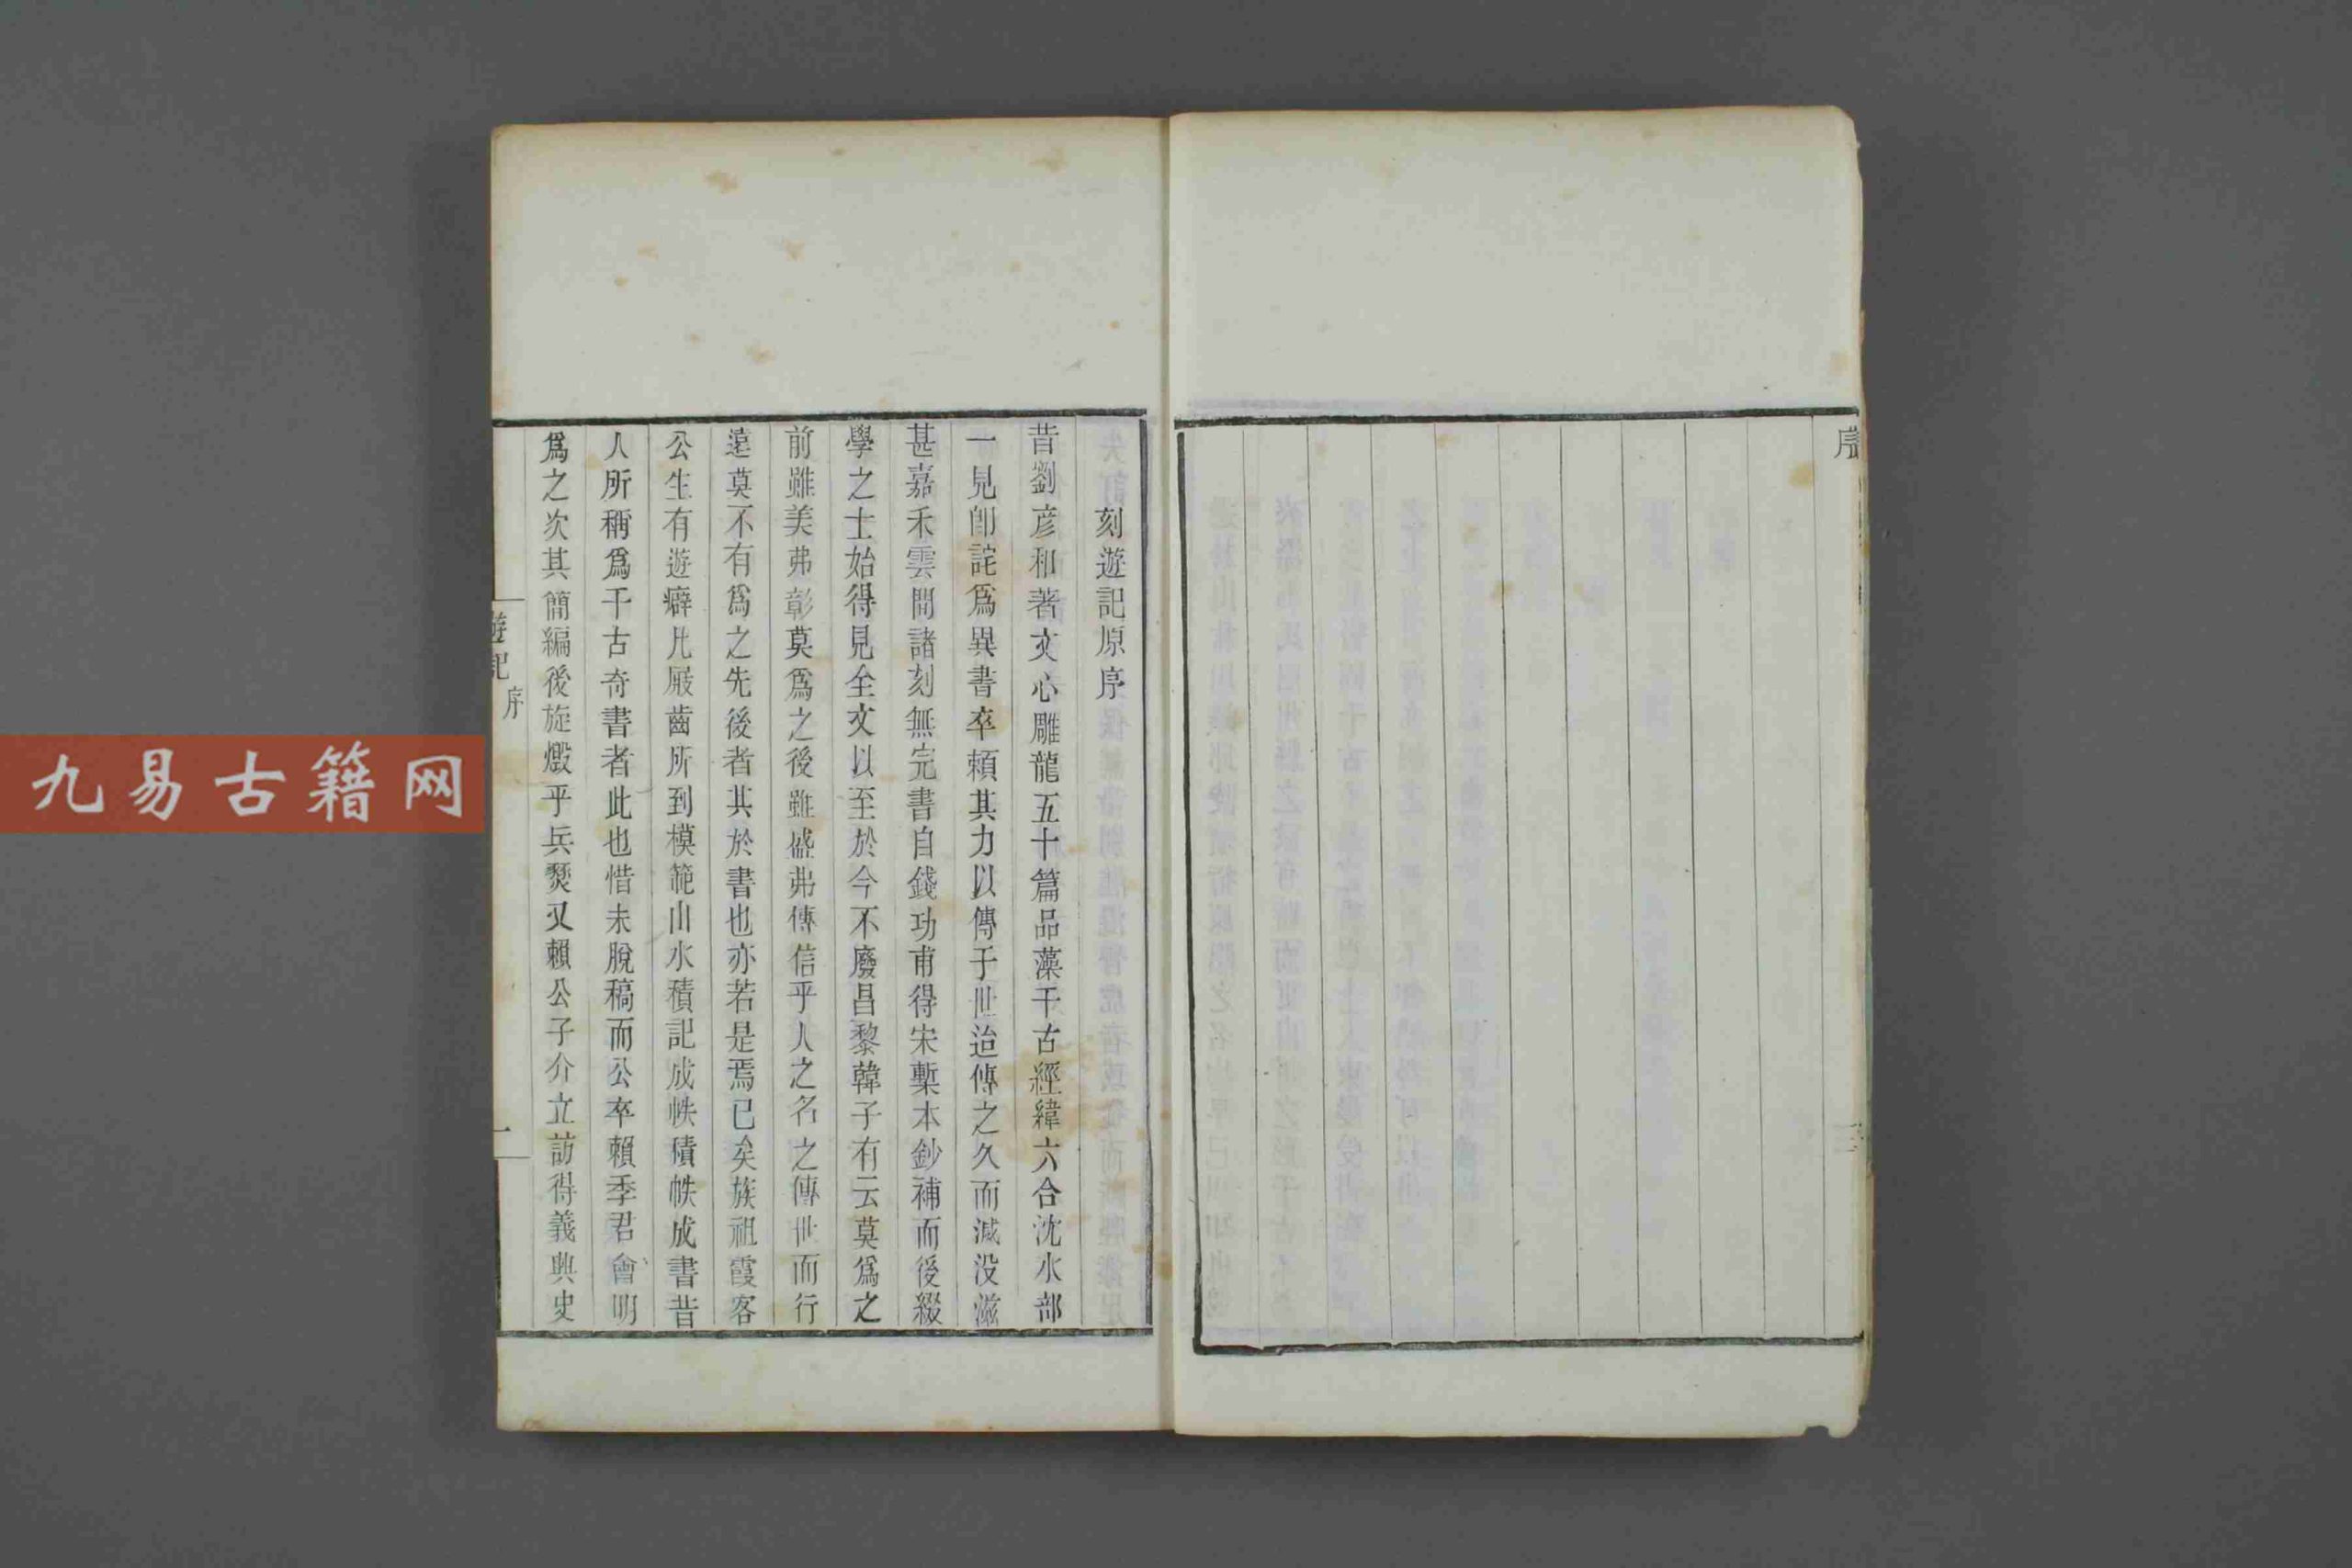 序
刻遊記原序
昔劉彥和著文心雕龍五十篇品藻千古經緯六合沈水部
一見卽詫爲異書卒賴其力以傳于世迨傳之久而減没滋
甚嘉禾雲間諸刻無完書自錢功甫得宋槧本鈔補而後綴
學之士始得見全文以至於今不廢昌黎韓子有云莫爲之
前雖美弗彰莫爲之後雖盛弗傳信乎人之名之傳世而行
遠莫不有爲之先後者其於書也亦若是焉已矣族祖霞客
公生有遊癖凡屐齒所到模範山水積記成帙積帙成書昔
人所稱爲千古奇書者此也惜未脫稿而公卒賴季君會明
爲之次其簡編後旋燬乎兵燹又賴公子介立訪得義興史
遊記
序
一
九易古籍网